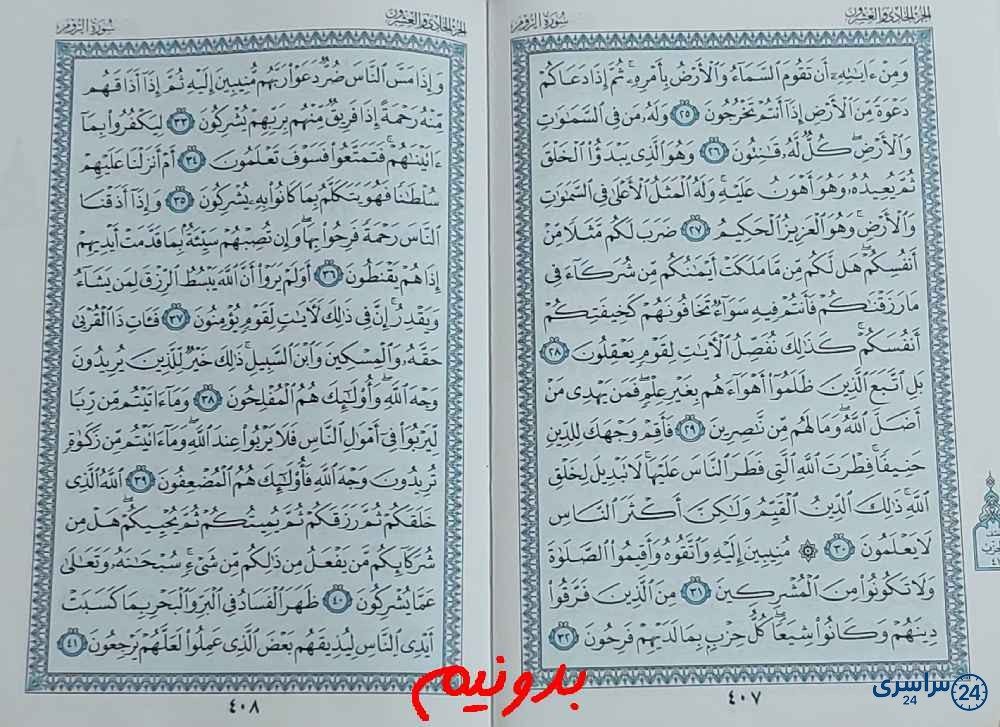 الجزء الحادي والعشرون
سُورَةُ الرُّومِ
وَمِنْ ءَايَٰتِهِۦٓ أَن تَقُومَ ٱلسَّمَآءُ وَٱلْأَرْضُ بِأَمْرِهِۦ ۚ ثُمَّ إِذَا دَعَاكُمْ
دَعْوَةً مِّنَ ٱلْأَرْضِ إِذَآ أَنتُمْ تَخْرُجُونَ ٢٥ وَلَهُۥ مَن فِى ٱلسَّمَٰوَٰتِ
وَٱلْأَرْضِ ۖ كُلٌّ لَّهُۥ قَٰنِتُونَ ٢٦ وَهُوَ ٱلَّذِى يَبْدَؤُا۟ ٱلْخَلْقَ
ثُمَّ يُعِيدُهُۥ وَهُوَ أَهْوَنُ عَلَيْهِ ۚ وَلَهُ ٱلْمَثَلُ ٱلْأَعْلَىٰ فِى ٱلسَّمَٰوَٰتِ
وَٱلْأَرْضِ ۚ وَهُوَ ٱلْعَزِيزُ ٱلْحَكِيمُ ٢٧ ضَرَبَ لَكُم مَّثَلًا مِّنْ
أَنفُسِكُمْ ۖ هَل لَّكُم مِّن مَّا مَلَكَتْ أَيْمَٰنُكُم مِّن شُرَكَآءَ فِى
مَا رَزَقْنَٰكُمْ فَأَنتُمْ فِيهِ سَوَآءٌ تَخَافُونَهُمْ كَخِيفَتِكُمْ
أَنفُسَكُمْ ۚ كَذَٰلِكَ نُفَصِّلُ ٱلْءَايَٰتِ لِقَوْمٍ يَعْقِلُونَ ٢٨
بَلِ ٱتَّبَعَ ٱلَّذِينَ ظَلَمُوٓا۟ أَهْوَآءَهُم بِغَيْرِ عِلْمٍ ۖ فَمَن يَهْدِى مَنْ
أَضَلَّ ٱللَّهُ ۖ وَمَا لَهُم مِّن نَّٰصِرِينَ ٢٩ فَأَقِمْ وَجْهَكَ لِلدِّينِ
حَنِيفًا ۚ فِطْرَتَ ٱللَّهِ ٱلَّتِى فَطَرَ ٱلنَّاسَ عَلَيْهَا ۚ لَا تَبْدِيلَ لِخَلْقِ
ٱللَّهِ ۚ ذَٰلِكَ ٱلدِّينُ ٱلْقَيِّمُ وَلَٰكِنَّ أَكْثَرَ ٱلنَّاسِ
لَا يَعْلَمُونَ ٣٠ ۞ مُنِيبِينَ إِلَيْهِ وَٱتَّقُوهُ وَأَقِيمُوا۟ ٱلصَّلَوٰةَ
وَلَا تَكُونُوا۟ مِنَ ٱلْمُشْرِكِينَ ٣١ مِنَ ٱلَّذِينَ فَرَّقُوا۟
دِينَهُمْ وَكَانُوا۟ شِيَعًا ۖ كُلُّ حِزْبٍۭ بِمَا لَدَيْهِمْ فَرِحُونَ ٣٢
٤٠٧
الجزء الحادي والعشرون
سُورَةُ الرُّومِ
وَإِذَا مَسَّ ٱلنَّاسَ ضُرٌّ دَعَوْا۟ رَبَّهُم مُّنِيبِينَ إِلَيْهِ ثُمَّ إِذَآ أَذَاقَهُم
مِّنْهُ رَحْمَةً إِذَا فَرِيقٌ مِّنْهُم بِرَبِّهِمْ يُشْرِكُونَ ٣٣ لِيَكْفُرُوا۟ بِمَآ
ءَاتَيْنَٰهُمْ ۚ فَتَمَتَّعُوا۟ فَسَوْفَ تَعْلَمُونَ ٣٤ أَمْ أَنزَلْنَا عَلَيْهِمْ
سُلْطَٰنًا فَهُوَ يَتَكَلَّمُ بِمَا كَانُوا۟ بِهِۦ يُشْرِكُونَ ٣٥ وَإِذَآ أَذَقْنَا
ٱلنَّاسَ رَحْمَةً فَرِحُوا۟ بِهَا ۖ وَإِن تُصِبْهُمْ سَيِّئَةٌۢ بِمَا قَدَّمَتْ أَيْدِيهِمْ
إِذَا هُمْ يَقْنَطُونَ ٣٦ أَوَلَمْ يَرَوْا۟ أَنَّ ٱللَّهَ يَبْسُطُ ٱلرِّزْقَ لِمَن يَشَآءُ
وَيَقْدِرُ ۚ إِنَّ فِى ذَٰلِكَ لَءَايَٰتٍ لِّقَوْمٍ يُؤْمِنُونَ ٣٧ فَـَٔاتِ ذَا ٱلْقُرْبَىٰ
حَقَّهُۥ وَٱلْمِسْكِينَ وَٱبْنَ ٱلسَّبِيلِ ۚ ذَٰلِكَ خَيْرٌ لِّلَّذِينَ يُرِيدُونَ
وَجْهَ ٱللَّهِ ۖ وَأُو۟لَٰٓئِكَ هُمُ ٱلْمُفْلِحُونَ ٣٨ وَمَآ ءَاتَيْتُم مِّن رِّبًا
لِّيَرْبُوَا۟ فِىٓ أَمْوَٰلِ ٱلنَّاسِ فَلَا يَرْبُوا۟ عِندَ ٱللَّهِ ۖ وَمَآ ءَاتَيْتُم مِّن زَكَوٰةٍ
تُرِيدُونَ وَجْهَ ٱللَّهِ فَأُو۟لَٰٓئِكَ هُمُ ٱلْمُضْعِفُونَ ٣٩ ٱللَّهُ ٱلَّذِى
خَلَقَكُمْ ثُمَّ رَزَقَكُمْ ثُمَّ يُمِيتُكُمْ ثُمَّ يُحْيِيكُمْ ۖ هَلْ مِن
شُرَكَآئِكُم مَّن يَفْعَلُ مِن ذَٰلِكُم مِّن شَىْءٍ ۚ سُبْحَٰنَهُۥ وَتَعَٰلَىٰ
عَمَّا يُشْرِكُونَ ٤٠ ظَهَرَ ٱلْفَسَادُ فِى ٱلْبَرِّ وَٱلْبَحْرِ بِمَا كَسَبَتْ
أَيْدِى ٱلنَّاسِ لِيُذِيقَهُم بَعْضَ ٱلَّذِى عَمِلُوا۟ لَعَلَّهُمْ يَرْجِعُونَ ٤١
٤٠٨
بدونیم
سراسری 24
24